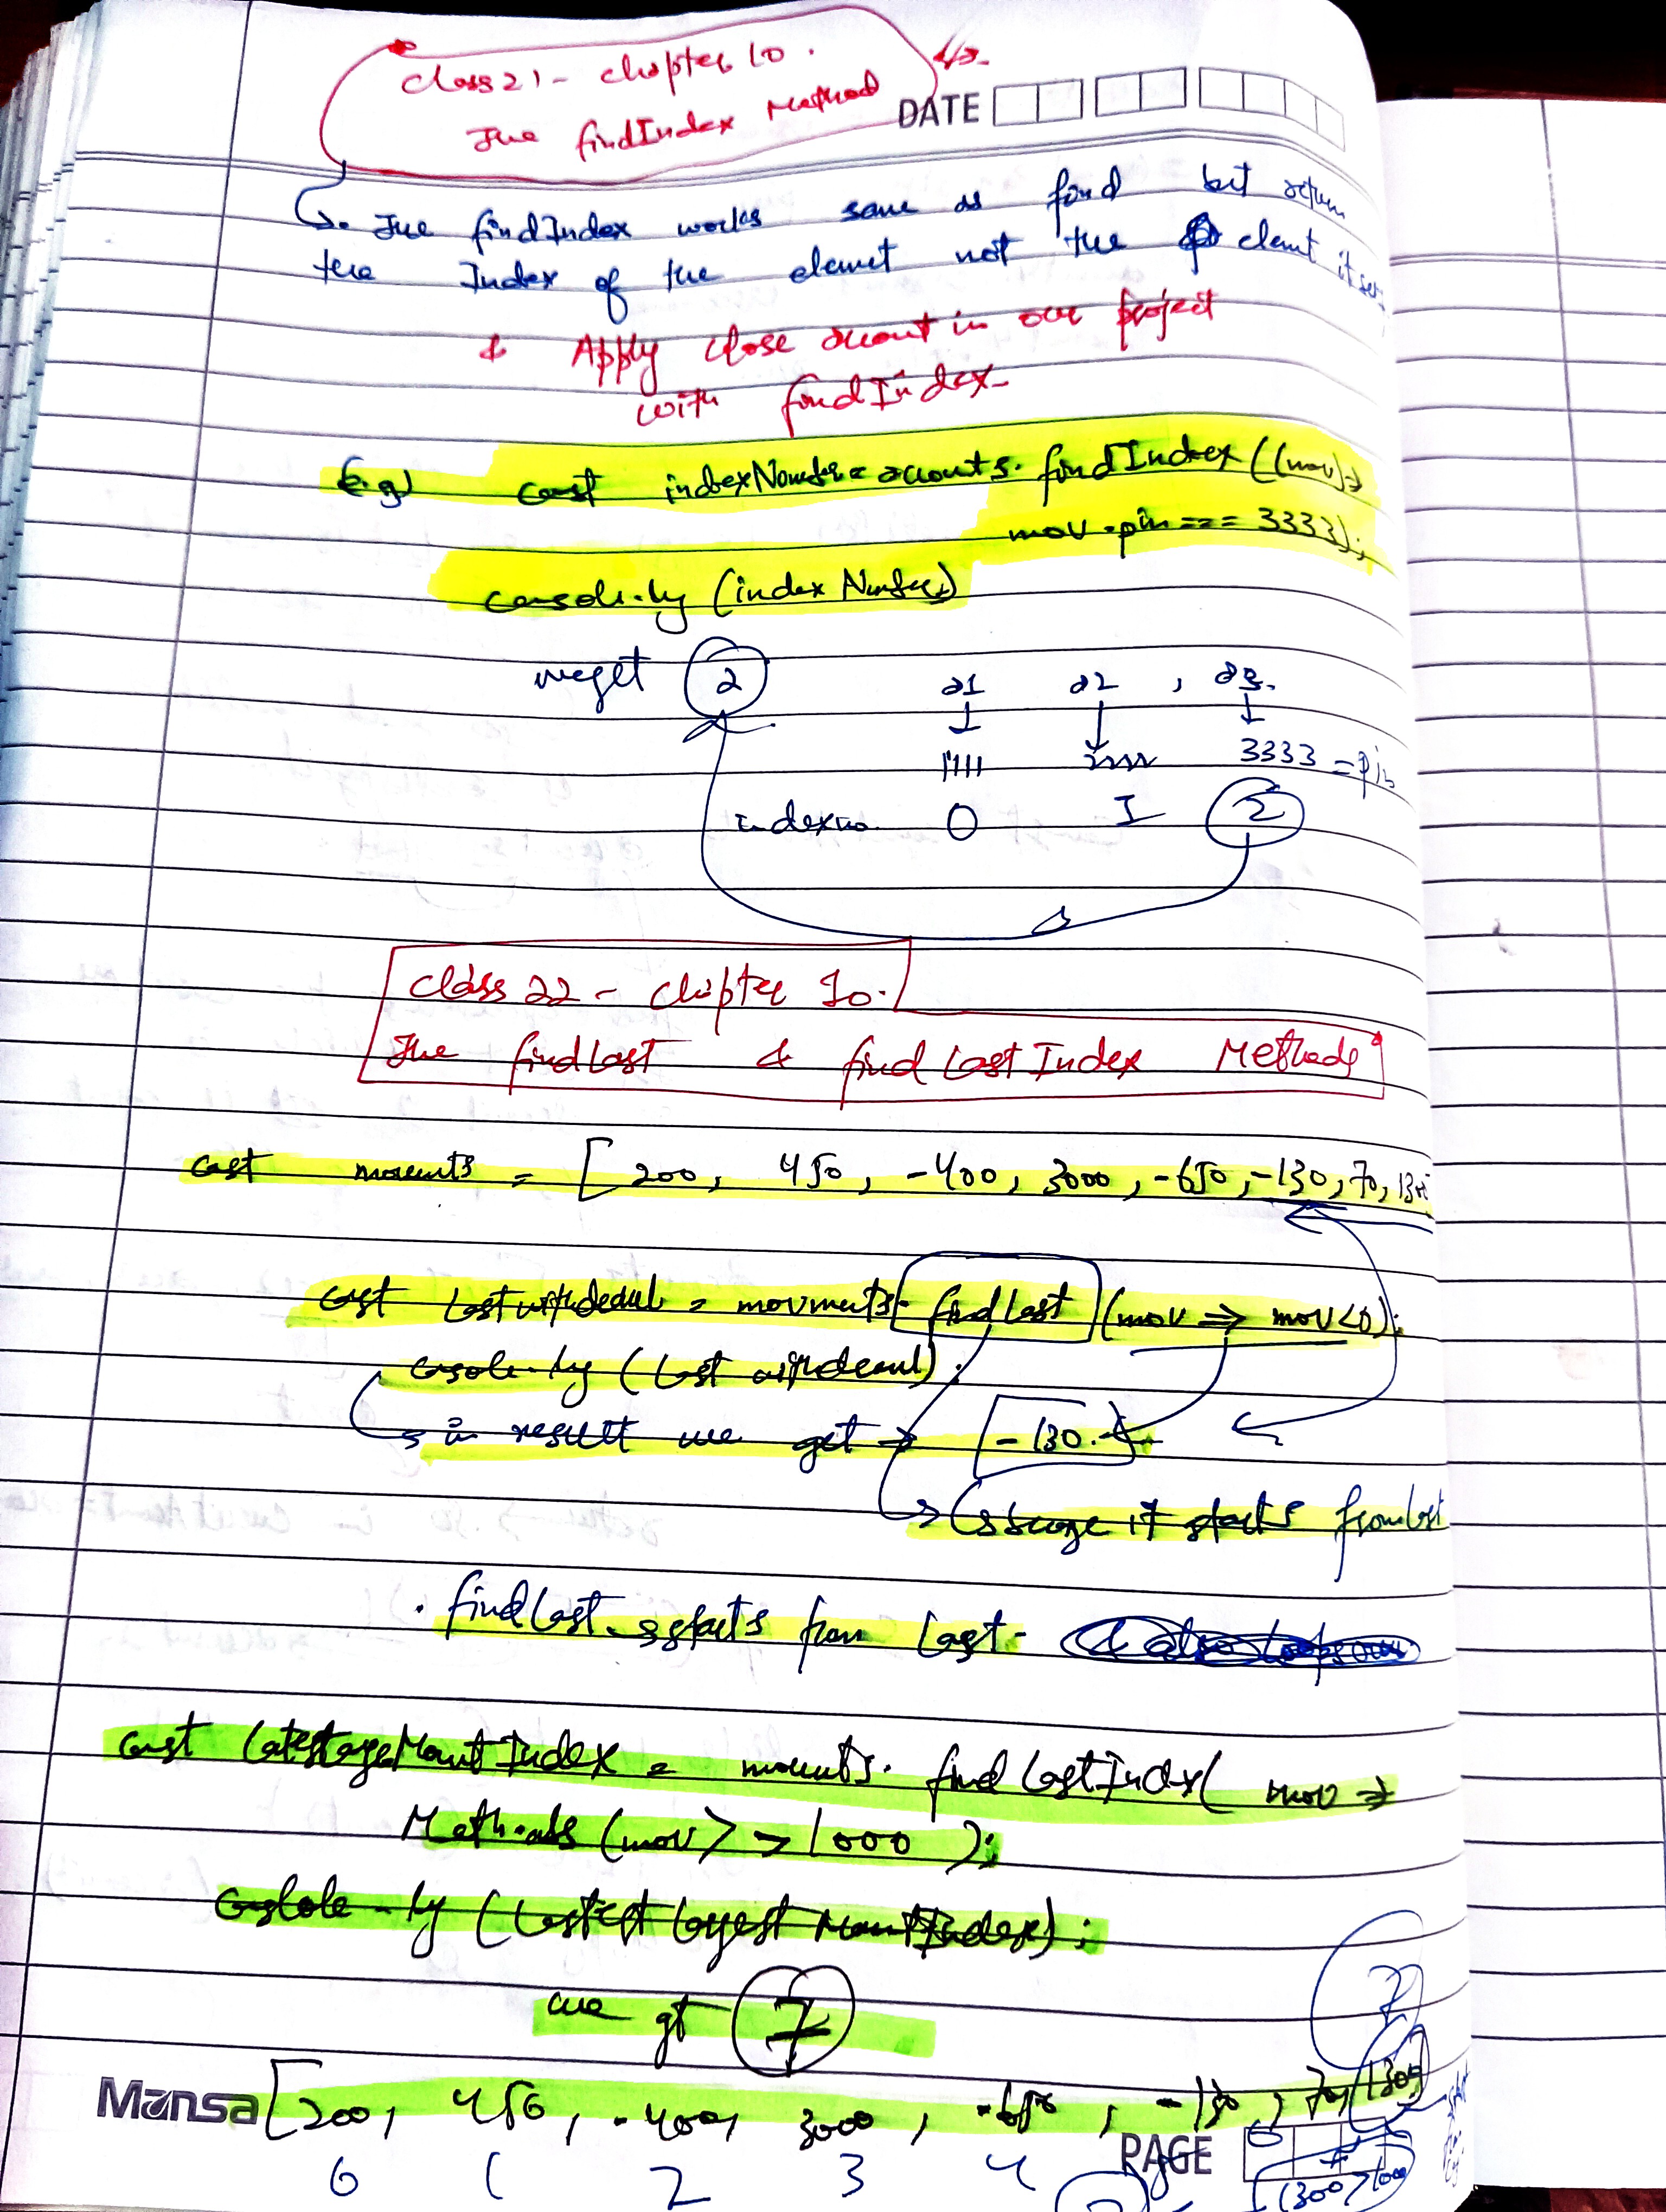 Class 21 - Chapter 10.
The findIndex Method
DATE
The findIndex works same as find but return
the Index of the elemet not the elemt itself
& Apply close account in our project
with findIndex
E.g) const indexNumber = accounts.findIndex((mov) =>
mov.pin === 3333);
console.log(indexNumber)
we get 2
a1 a2 , a3.
1111 2222 3333 = pin
index no. 0 1 2
Class 22 - Chapter 10.
The findLast & findLastIndex Methods
const movements = [200, 450, -400, 3000, -650, -130, 70, 1300
const lastwithdrawal = movments.findLast(mov => mov<0);
console.log(last withdrawal).
in result we get → -130.
because it starts from last
. findLast starts from last.
const latestlargeMountIndex = movements.findLastIndex(mov =>
Math.abs(mov) > 1000);
console.log(latest largest MountIndex);
we get 7
7
Mansa [200, 450, -400, 3000, -650, -130, 70, 1300]
0 1 2 3 4
PAGE
1300 > 1000